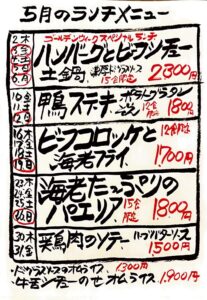 5月のランチメニュー
2木 3金 4土 5日 6月
ゴールデンウィークスペシャルランチ
ハンバーグとビーフシチュー
土鍋 15食限定 2300円
9木 10金 11土 12日
鴨ステーキ ポテトグラタン
12食限定 1800円
16木 17金 18土 19日
ビーフコロッケと 12食限定
海老フライ 1700円
23木 24金 25土 26日
海老たっぷりの
パエリア 15食限定 1800円
30木 31金
若鶏肉のソテー ハーブバターソース
1500円
オムライス 1300円
牛タンシチューのせオムライス 1900円